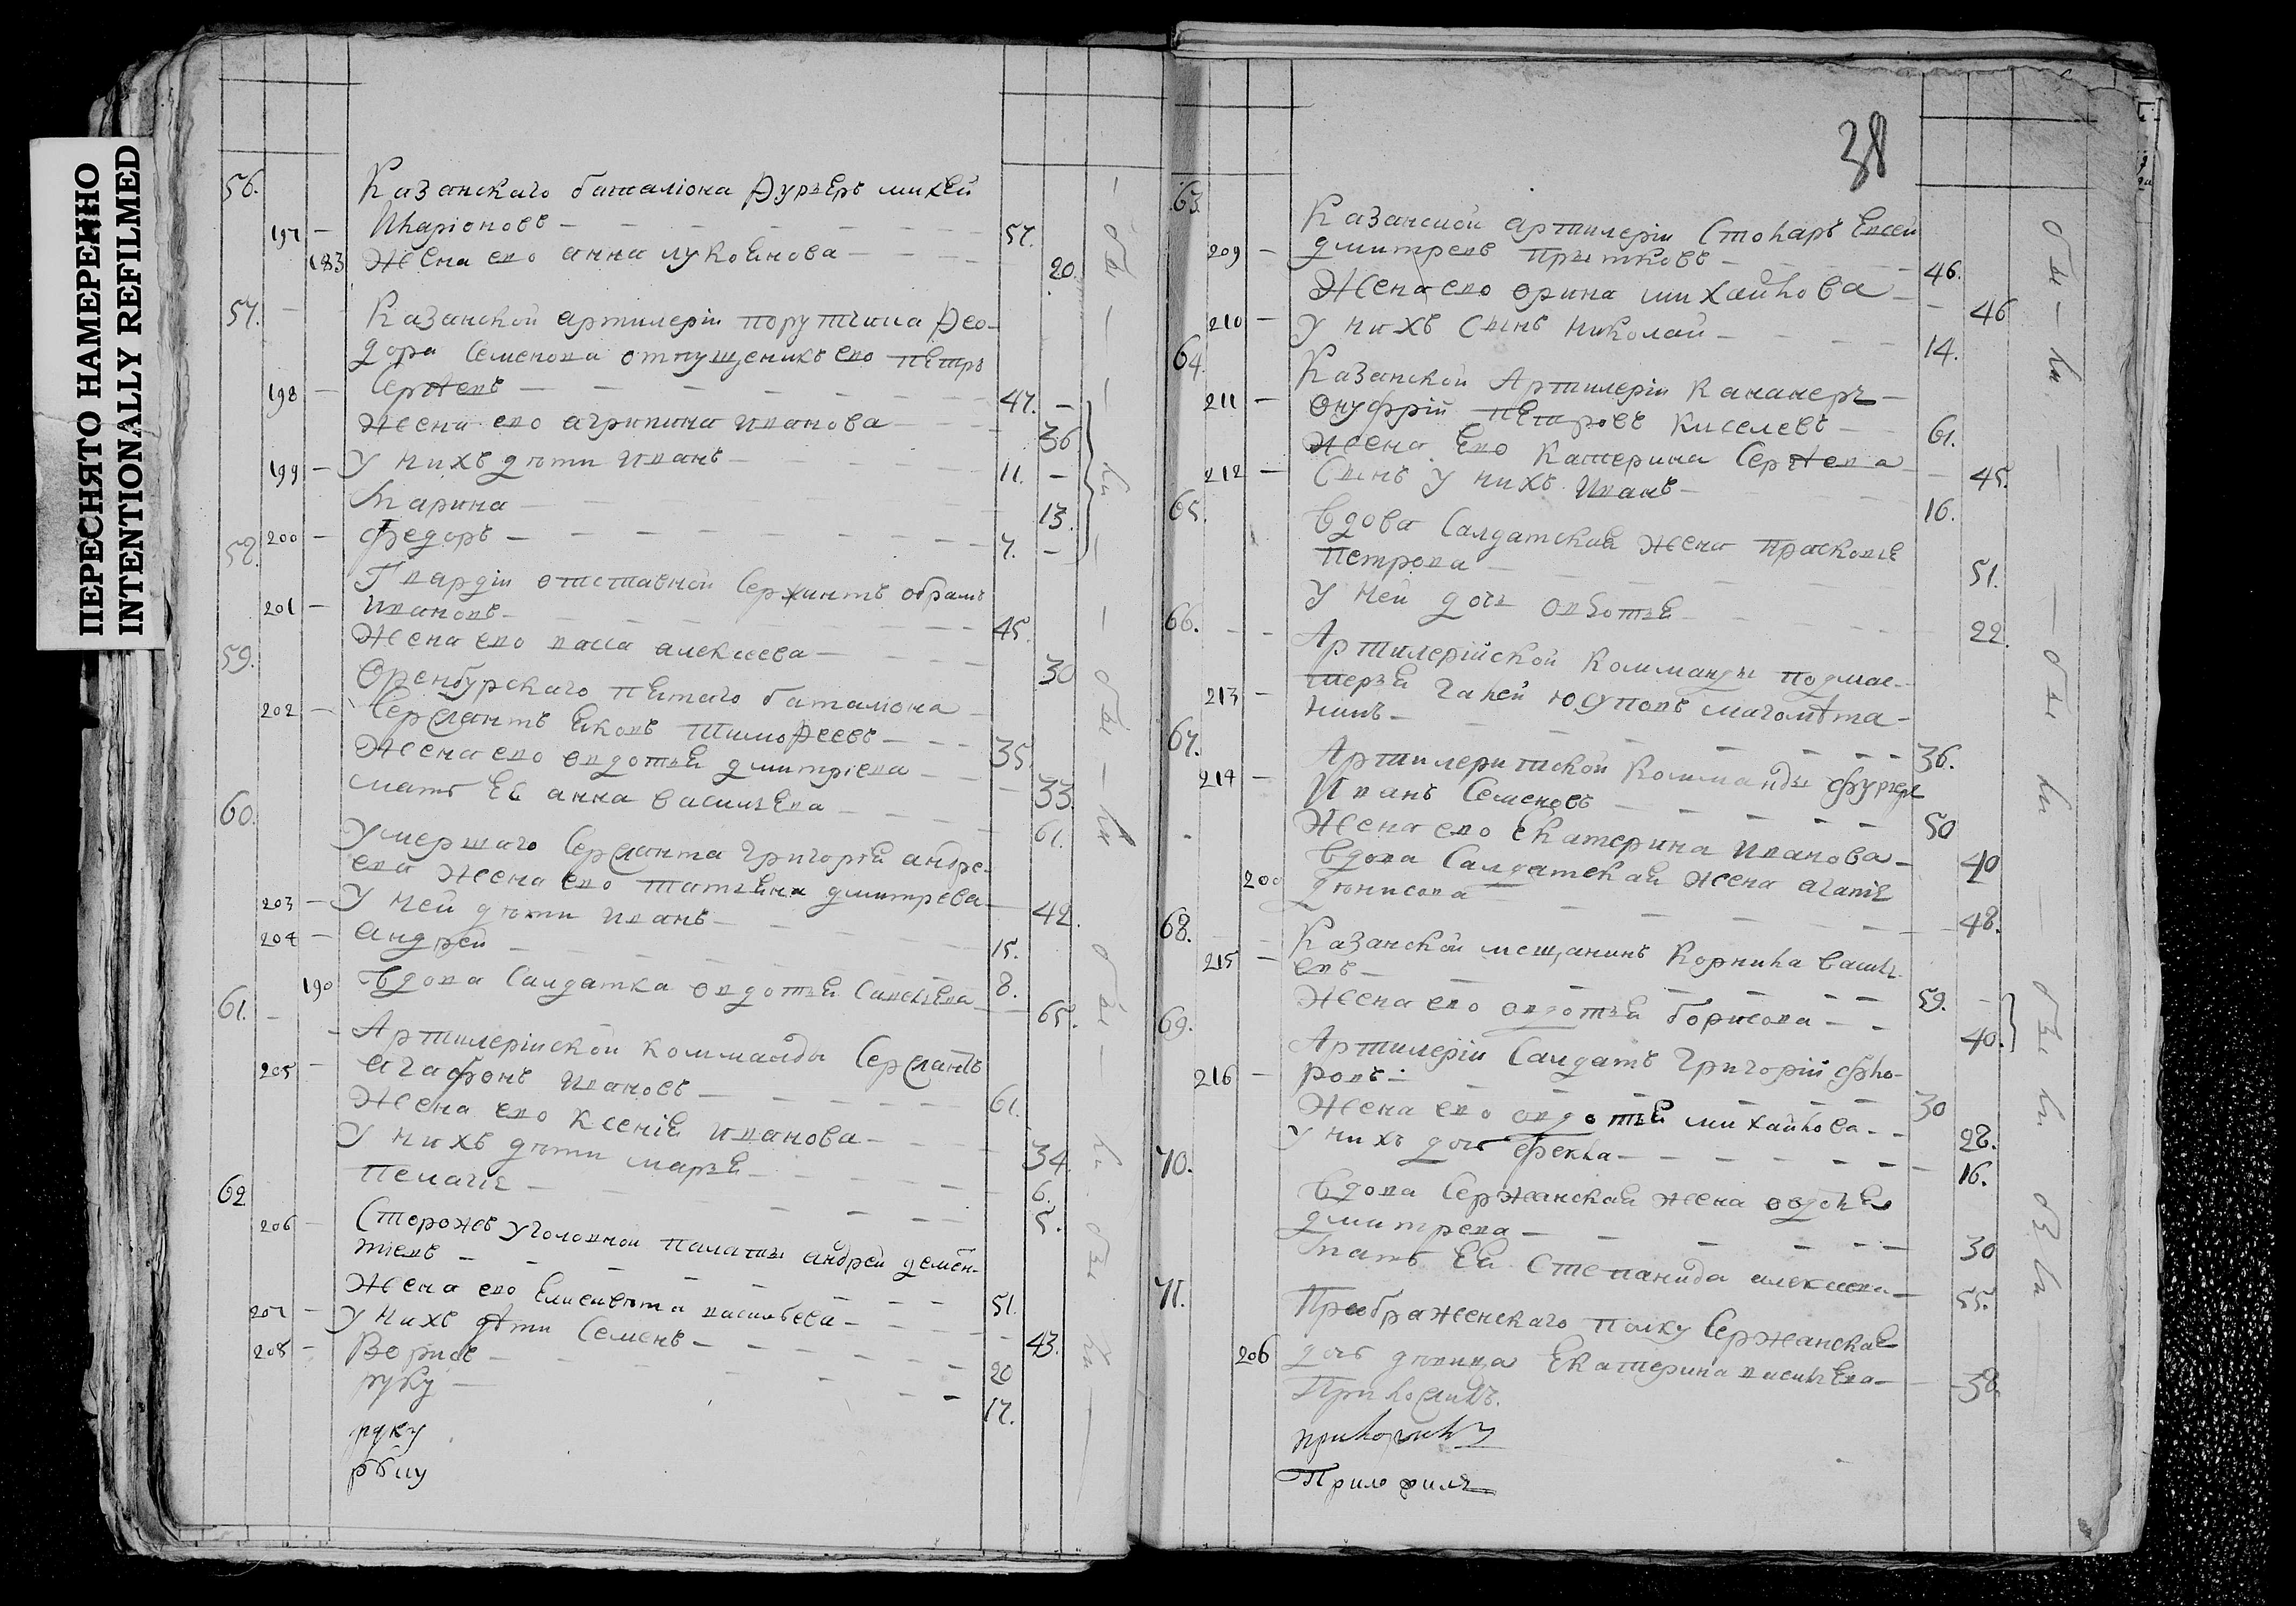 ПЕРЕСНЯТО НАМЕРЕННО
INTENTIONALLY REFILMED
56. Казанскаго баталіона Фурьеръ михей
197 — Иларіоновъ — 57.
183 Жена ево анна лукоянова — 20.
57. Казанской артилеріи порутчика Фео-
дора Семенова отпущеникъ ево петръ
198 — Сергеевъ — 47. —
жена ево агрипина иванова — 36
199 — У нихъ дѣти иванъ — 11. —
Марина — 13.
200 — федоръ — 7. —
58. Гвардіи отставной Сержантъ
201 — ивановъ — 45.
Жена ево васса алексеева — 30
59. Оренбургскаго пятаго баталиона
202 — Сержантъ яковъ тимофеевъ — 35.
Жена ево овдотья дмитріева — 33
мать ее анна васильева — 61.
60. Умершаго Сержанта григорья андре-
ева жена ево татьяна дмитрева — 42.
203 — У ней дѣти иванъ — 15.
204 — андрей — 8.
190 вдова Салдатка овдотья — 65.
61. — Артилерійской комманды Сержантъ
205 — агафонъ ивановъ — 61.
Жена ево ксенія иванова — 34
У нихъ дѣти марья — 6.
пелагія — 5.
62 Сторожъ уголовной палаты андрей демен-
206 — тіевъ — 51.
Жена ево Елисавѣта васильева — 43.
207 — У нихъ дѣти Семенъ — 20
208 — Борисъ — 17.
руку
руку
38
63. Казанской артилеріи Столяръ Евсей
209 — дмитревъ прытковъ — 46.
Жена ево орина михайлова — 46
210 — У нихъ Сынъ николай — 14.
64. Казанской Артилеріи Кананеръ —
211 — онуфрій петровъ киселевъ — 61.
жена Ево Катерина Сергеева — 45.
212 — Сынъ у нихъ иванъ — 16.
65. вдова Салдатская жена прасковья
петрова — 51.
У ней дочь овдотья — 22.
66. Артилерійской комманды подмас-
213 — терья галей юсуповъ магомѣта-
нинъ — 36.
67. Артилеритской комманды фурьеръ
214 — Иванъ Семеновъ — 50
Жена ево Екатерина иванова — 40
вдова Салдатская жена агапія
200 дѣнисова — 48.
68. Казанской мещанинъ Корнила василь-
215 — евъ — 59.
Жена ево овдотья борисова — 40.
69. Артилеріи Салдатъ григорій фло-
216 — ровъ — 30
Жена ево овдотья михайлова — 28.
У нихъ дочь фекла — 16.
70. вдова Сержанская жена овдотья
дмитрева — 30
мать Ея Степанида алексеева — 55.
71. Преображенскаго полку Сержанская
206 дочь дѣвица Екатерина васильева — 38
Приложилъ.
приложилъ
Приложилъ